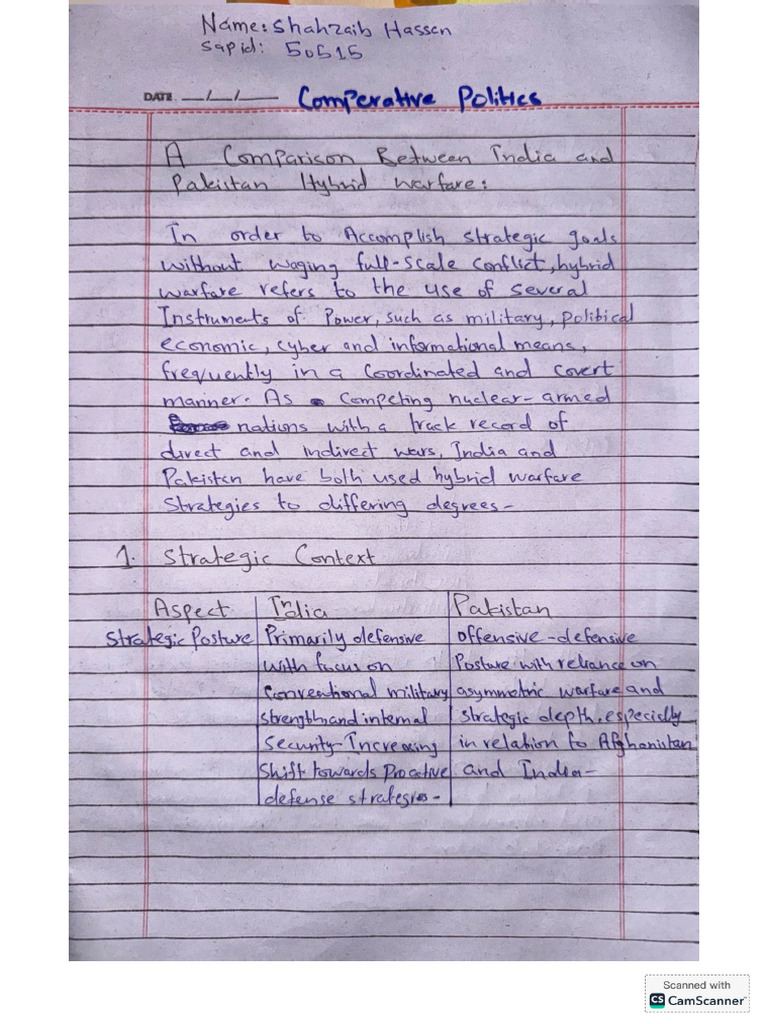 Name: Shahzaib Hassan
Sap id: 50515
DATE __/__/__ Comperative Politics
A Comparison Between India and
Pakistan Hybrid warfare:
In order to Accomplish strategic goals
without waging full-scale conflict, hybrid
warfare refers to the use of several
Instruments of Power, such as military, political
economic, cyber and informational means,
frequently in a Coordinated and covert
manner. As competing nuclear-armed
nations with a track record of
direct and indirect wars, India and
Pakistan have both used hybrid warfare
Strategies to differing degrees-
1. Strategic Context
Aspect India Pakistan
Strategic Posture Primarily defensive offensive-defensive
with focus on Posture with reliance on
Conventional military asymmetric warfare and
strength and internal strategic depth, especially
Security-Increasing in relation to Afghanistan
Shift towards Proactive and India-
defense strategies-
Scanned with
CS CamScanner